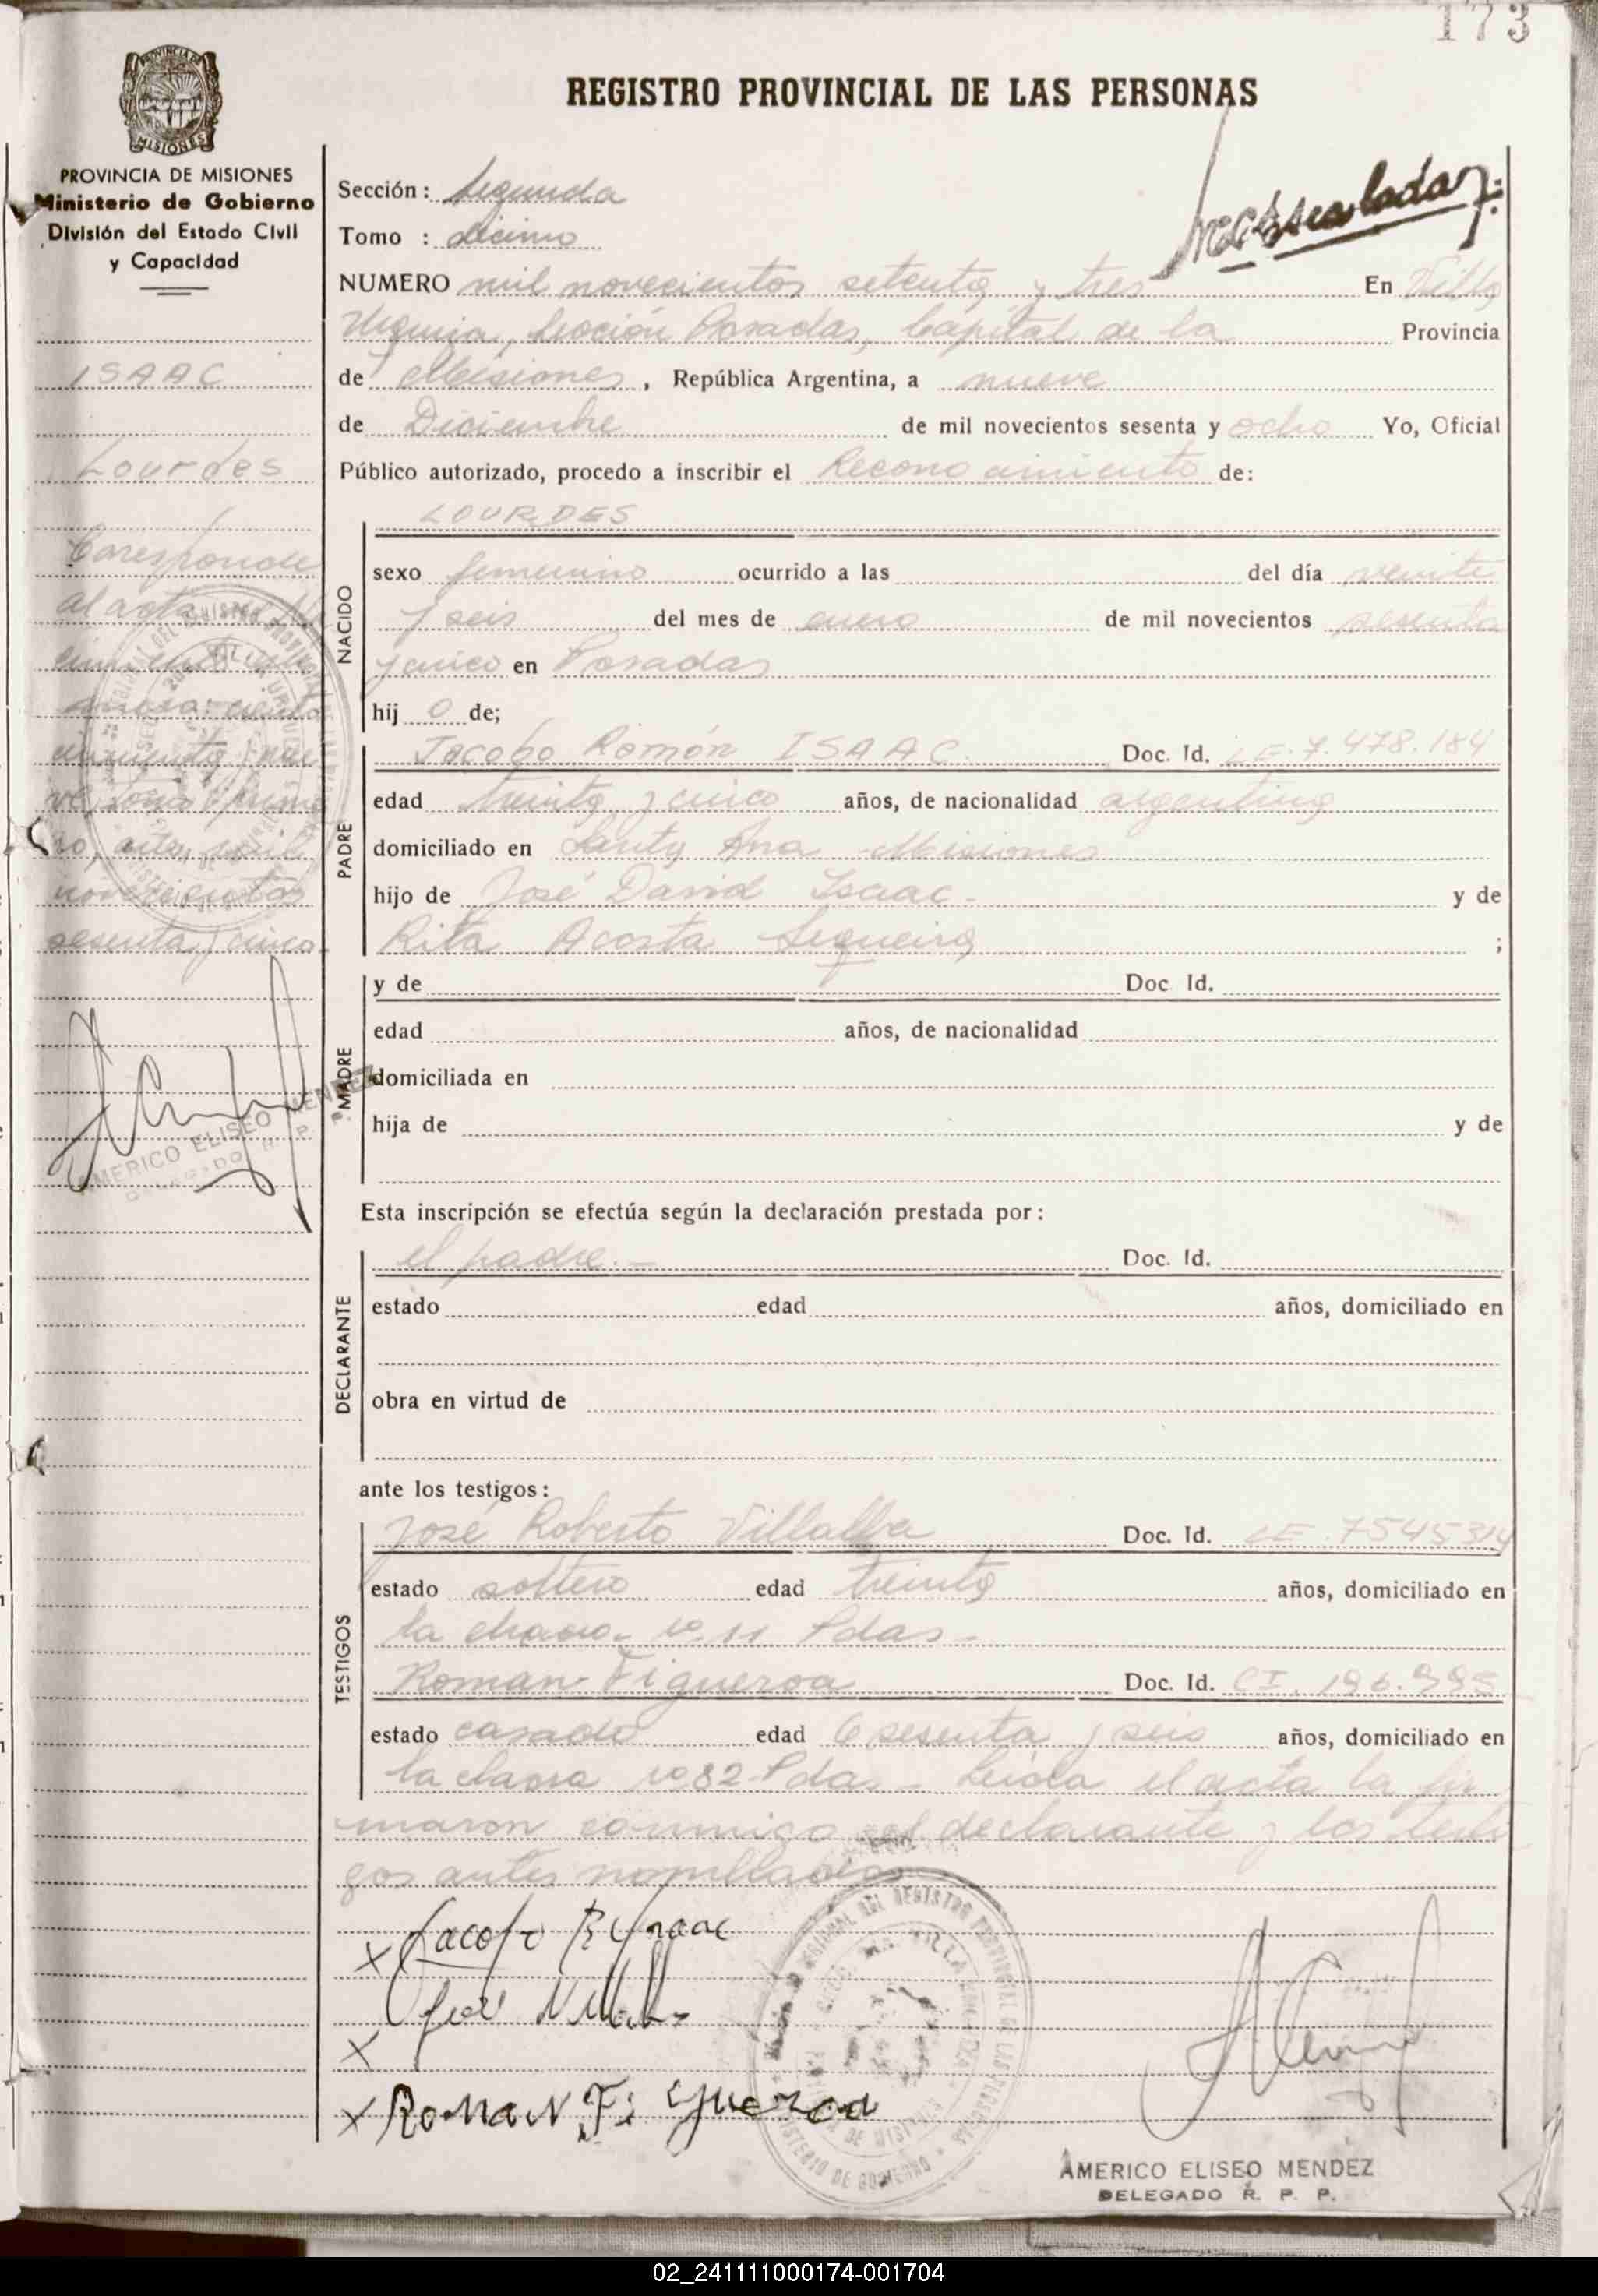 173
REGISTRO PROVINCIAL DE LAS PERSONAS
PROVINCIA DE MISIONES
MISIONES
PROVINCIA DE MISIONES
Ministerio de Gobierno
División del Estado Civil
y Capacidad
ISAAC
Lourdes
Corresponde
al acta
ciento
cincuenta y nue
ve, tomo prime
ro, año mil
novecientos
sesenta y cinco.
AMERICO ELISEO MENDEZ
DELEGADO R. P. P.
Sección: Segunda
Tomo : décimo
NUMERO mil novecientos setenta y tres En Villa
Urquiza, Sección Posadas, Capital de la Provincia
de Misiones, República Argentina, a nueve
de Diciembre de mil novecientos sesenta y ocho Yo, Oficial
Público autorizado, procedo a inscribir el Reconocimiento de:
LOURDES
NACIDO
sexo femenino ocurrido a las del día veinte
y seis del mes de enero de mil novecientos sesenta
y cinco en Posadas
hij o de;
PADRE
Jacobo Román ISAAC. Doc. Id. LE. 7.478.184
edad treinta y cinco años, de nacionalidad argentina
domiciliado en Santa Ana - Misiones
hijo de José David Isaac - y de
Rita Acosta Sequeira ;
MADRE
y de Doc Id.
edad años, de nacionalidad
domiciliada en
hija de y de
Esta inscripción se efectúa según la declaración prestada por:
DECLARANTE
el padre.- Doc. Id.
estado edad años, domiciliado en
obra en virtud de
ante los testigos:
TESTIGOS
José Roberto Villalba Doc. Id. LE. 7545314
estado soltero edad treinta años, domiciliado en
la chacra nº 11 Pdas -
Roman Figueroa Doc. Id. CI. 196.995
estado casado edad sesenta y seis años, domiciliado en
la chacra nº 82 Pdas - Leida el acta la fir
maron conmigo el declarante y los testi
gos antes nombrados
x Jacobo R Isaac
José Villalba
x
x ROMAN Figueroa
AMERICO ELISEO MENDEZ
DELEGADO R. P. P.
02_241111000174-001704